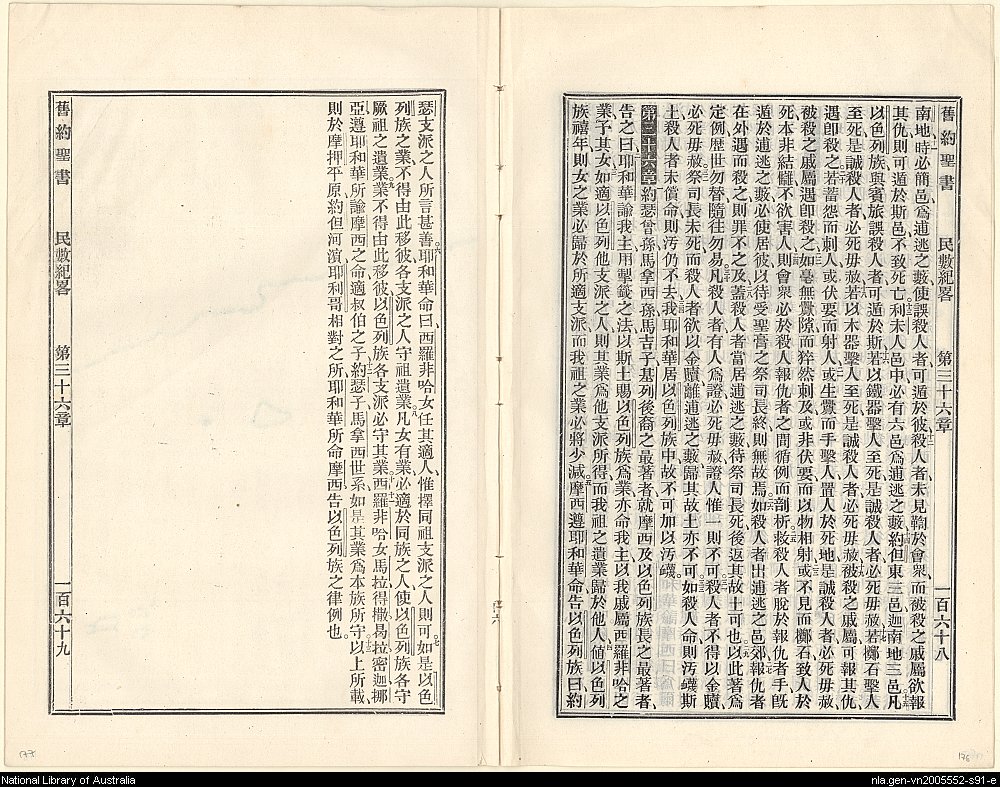 舊約聖書 民數紀畧 第三十六章 一百六十八
南地時必簡邑爲逋逃之藪使誤殺人者可遁於彼殺人者未見鞫於會衆而被殺之戚屬欲報
其仇則可遁於斯邑不致死亡利未人邑中必有六邑爲逋逃之藪約但東三邑迦南地三邑凡
以色列族與賓旅誤殺人者可遁於斯若以鐵器擊人至死是誠殺人者必死毋赦若擲石擊人
至死是誠殺人者必死毋赦若以木器擊人至死是誠殺人者必死毋赦被殺之戚屬可報其仇
遇卽殺之若蓄怨而刺人或伏要而射人或生釁而手擊人置人於死地是誠殺人者必死毋赦
被殺之戚屬遇卽殺之如毫無釁隙而猝然刺及或非伏要而以物相射或不見而擲石致人於
死本非結讎不欲害人則會衆必於殺人報仇者之間循例而剖析救殺人者脫於報仇者手旣
遁於逋逃之藪必使居彼以待受聖膏之祭司長終則無故焉如殺人者出逋逃之邑郊報仇者
在外遇而殺之則罪不之及蓋殺人者當居逋逃之藪待祭司長死後返其故土可也以此著爲
定例歷世勿替隨往勿易凡殺人者有人爲證必死毋赦證人惟一則不可殺人者不得以金贖
必死毋赦祭司長未死而殺人者欲以金贖離逋逃之藪歸其故土亦不可如殺人命則汚衊斯
土殺人者未償命則汚仍不去我耶和華居以色列族中故不可加以汚衊
第三十六章 約瑟曾孫馬拿西孫馬吉子基列後裔之最著者就摩西及以色列族長之最著者
告之曰耶和華諭我主用掣籤之法以斯土賜以色列族爲業亦命我主以我戚屬西羅非哈之
業予其女如適以色列他支派之人則其業爲他支派所得而我祖之遺業歸於他人値以色列
族禧年則女之業必歸於所適支派而我祖之業必將少減摩西遵耶和華命告以色列族曰約
瑟支派之人所言甚善耶和華命曰西羅非哈女任其適人惟擇同祖支派之人則可如是以色
列族之業不得由此移彼各支派之人守祖遺業凡女有業必適於同族之人使以色列族各守
厥祖之遺業業不得由此移彼以色列族各支派必守其業西羅非哈女馬拉得撒曷拉密迦挪
亞遵耶和華所諭摩西之命適叔伯之子約瑟子馬拿西世系如是其業爲本族所守以上所載
則於摩押平原約但河濱耶利哥相對之所耶和華所命摩西告以色列族之律例也
舊約聖書 民數紀畧 第三十六章 一百六十九
177
176
National Library of Australia
nla.gen-vn2005552-s91-e